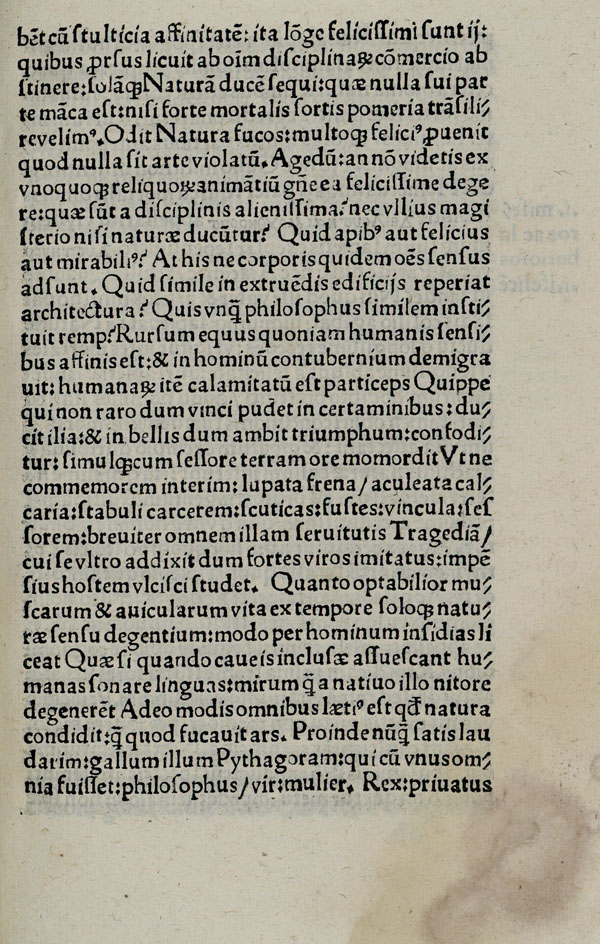 bēt cū stulticia affinitatē: ita lōge felicissimi sunt ij:
quibus ꝓrsus licuit ab oīm disciplinaꝝ cōmercio ab
stinere: solāqꝫ Naturā ducē sequi: quæ nulla sui par
te māca est: nisi forte mortalis sortis pomeria trāsili⸗
re velimꝰ. Odit Natura fucos: multoqꝫ feliciꝰ ꝓuenit
quod nulla sit arte violatū. Agedū: an nō videtis ex
vnoquoqꝫ reliquoꝝ animātiū gn̄e ea felicissime dege
re: quæ sūt a disciplinis alienissima? nec vllius magi
sterio nisi naturæ ducūtur? Quid apibꝰ aut felicius
aut mirabiliꝰ? At his ne corporis quidem oēs sensus
adsunt. Quid simile in extruēdis edificijs reperiat
architectura? Quis vnq̄ philosophus similem insti⸗
tuit remp? Rursum equus quoniam humanis sensi⸗
bus affinis est: & in hominū contubernium demigra
uit: humanaꝝ itē calamitatū est particeps Quippe
qui non raro dum vinci pudet in certaminibus: du⸗
cit ilia: & in bellis dum ambit triumphum: confodi⸗
tur: simulqꝫ cum sessore terram ore momordit Vt ne
commemorem interim: lupata frena / aculeata cal⸗
caria: stabuli carcerem: scuticas: fustes: vincula: ses
sorem: breuiter omnem illam seruitutis Tragediā /
cui se vltro addixit dum fortes viros imitatus: impē
sius hostem vlcisci studet. Quanto optabilior mu⸗
scarum & auicularum vita ex tempore soloqꝫ natu⸗
ræ sensu degentium: modo per hominum insidias li
ceat Quæ si quando caueis inclusæ assuescant hu⸗
manas sonare linguas: mirum q̄ a natiuo illo nitore
degenerēt Adeo modis omnibus lætiꝰ est qđ natura
condidit: q̄ quod fucauit ars. Proinde nūq̄ satis lau
darim: gallum illum Pythagoram: qui cū vnus om⸗
nia fuisset: philosophus / vir: mulier. Rex: priuatus